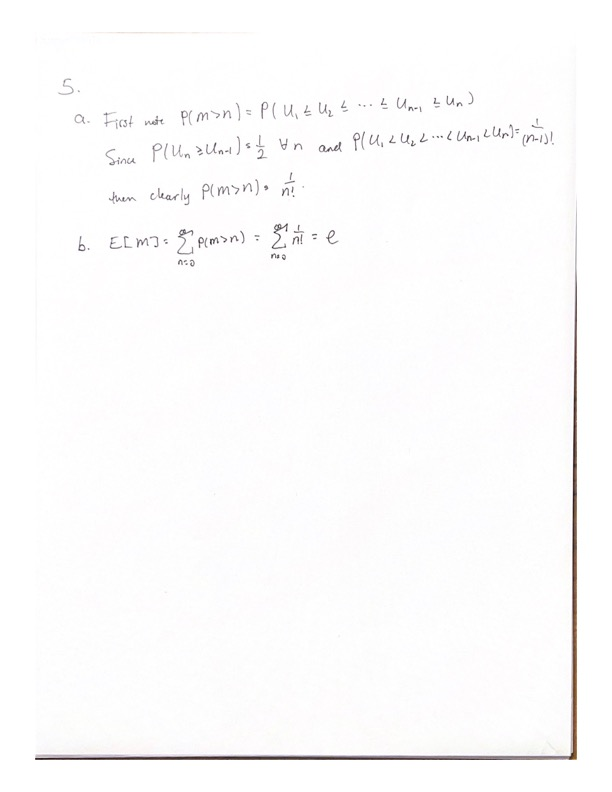 5.
a. First note P(m>n) = P( U₁ ≤ U₂ ≤ ⋯ ≤ Uₙ₋₁ ≤ Uₙ)
Since P(Uₙ ≥ Uₙ₋₁) = 1/2 ∀ n and P(U₁ < U₂ < ⋯ < Uₙ₋₁ < Uₙ) = 1/(n-1)!
then clearly P(m>n) = 1/n! .
b. E[M] = ∑_{n=0}^{∞} P(m>n) = ∑_{n=0}^{∞} 1/n! = e